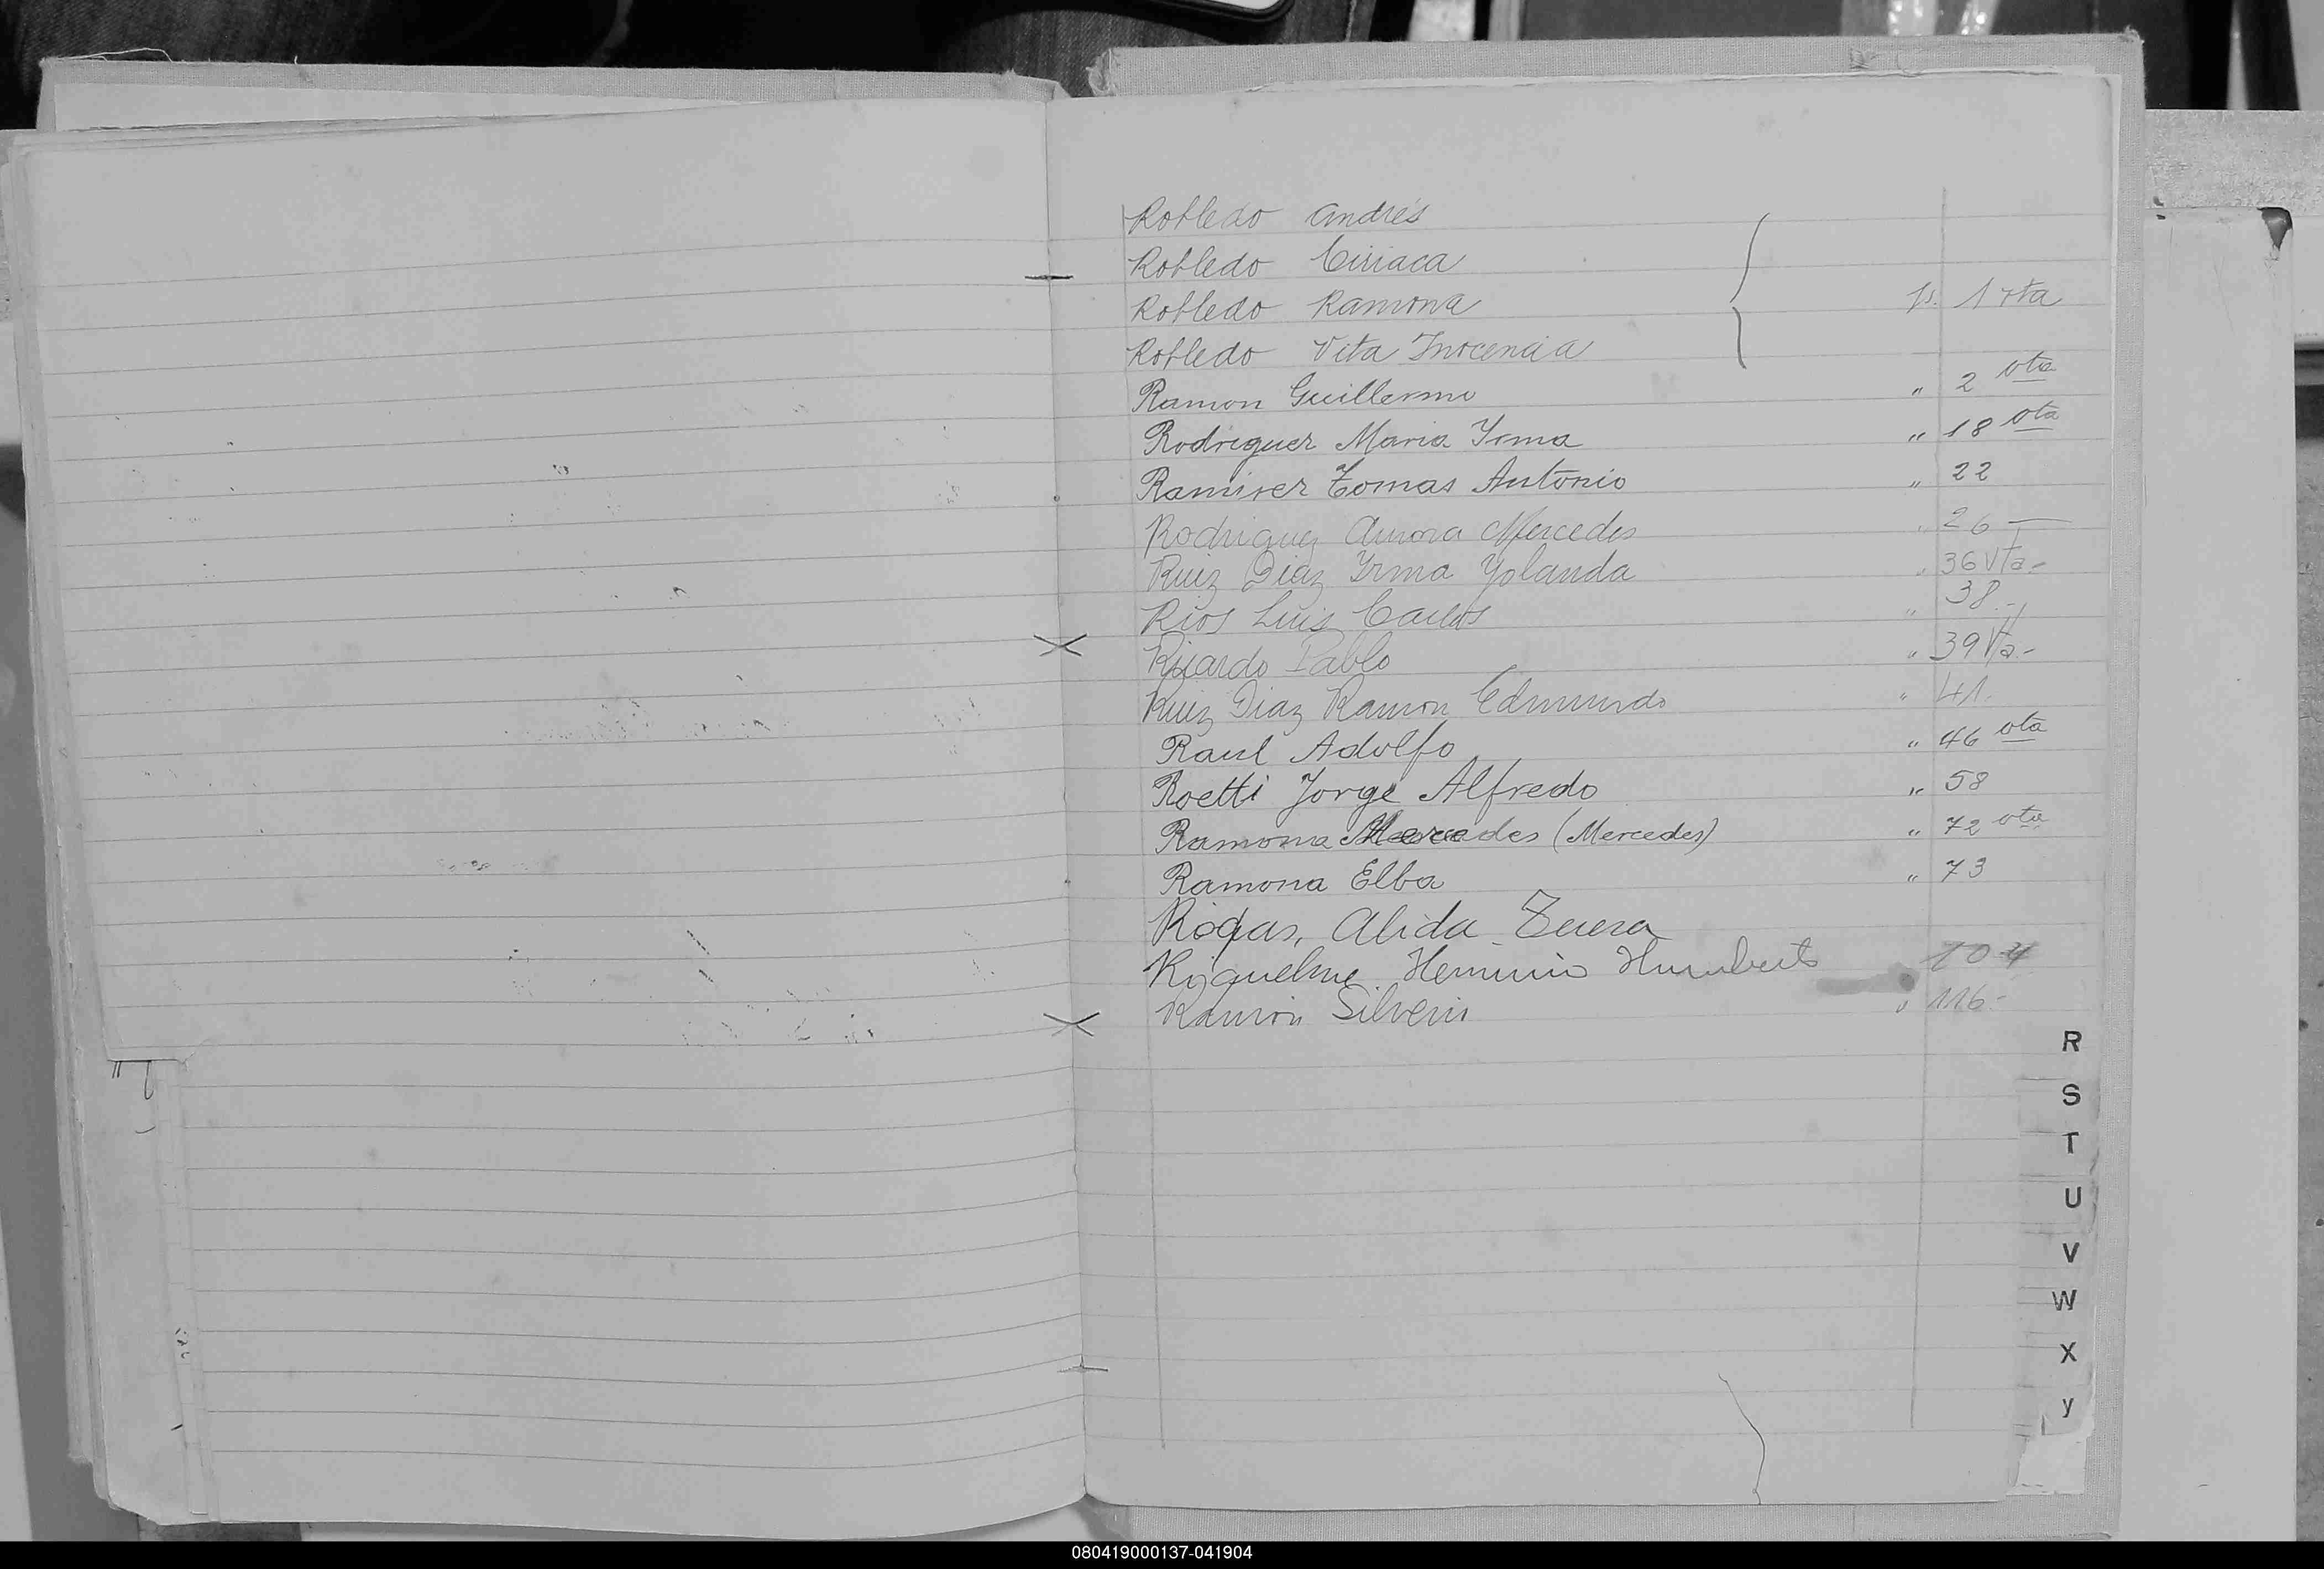 Robledo Andrés
Robledo Ciriaca
Robledo Ramona fs. 1 vta
Robledo Vita Inocencia
Ramon Guillermo " 2 vta
Rodriguez Maria Irma " 18 vta
Ramirez Tomas Antonio " 22
Rodriguez Aurora Mercedes " 26 —
Ruiz Diaz Yrma Yolanda " 36 Vta-
Rios Luis Carlos " 38.-
Ricardo Pablo " 39 Vta-
Ruiz Diaz Ramon Edmundo " 41.
Raul Adolfo " 46 vta
Roetti Jorge Alfredo " 58
Ramona (Mercedes) " 72 vta
Ramona Elba " 73
Alida
Riquelme Herminio Humberto 104
Ramón Silverio " 116-
R
S
T
U
V
W
X
y
080419000137-041904